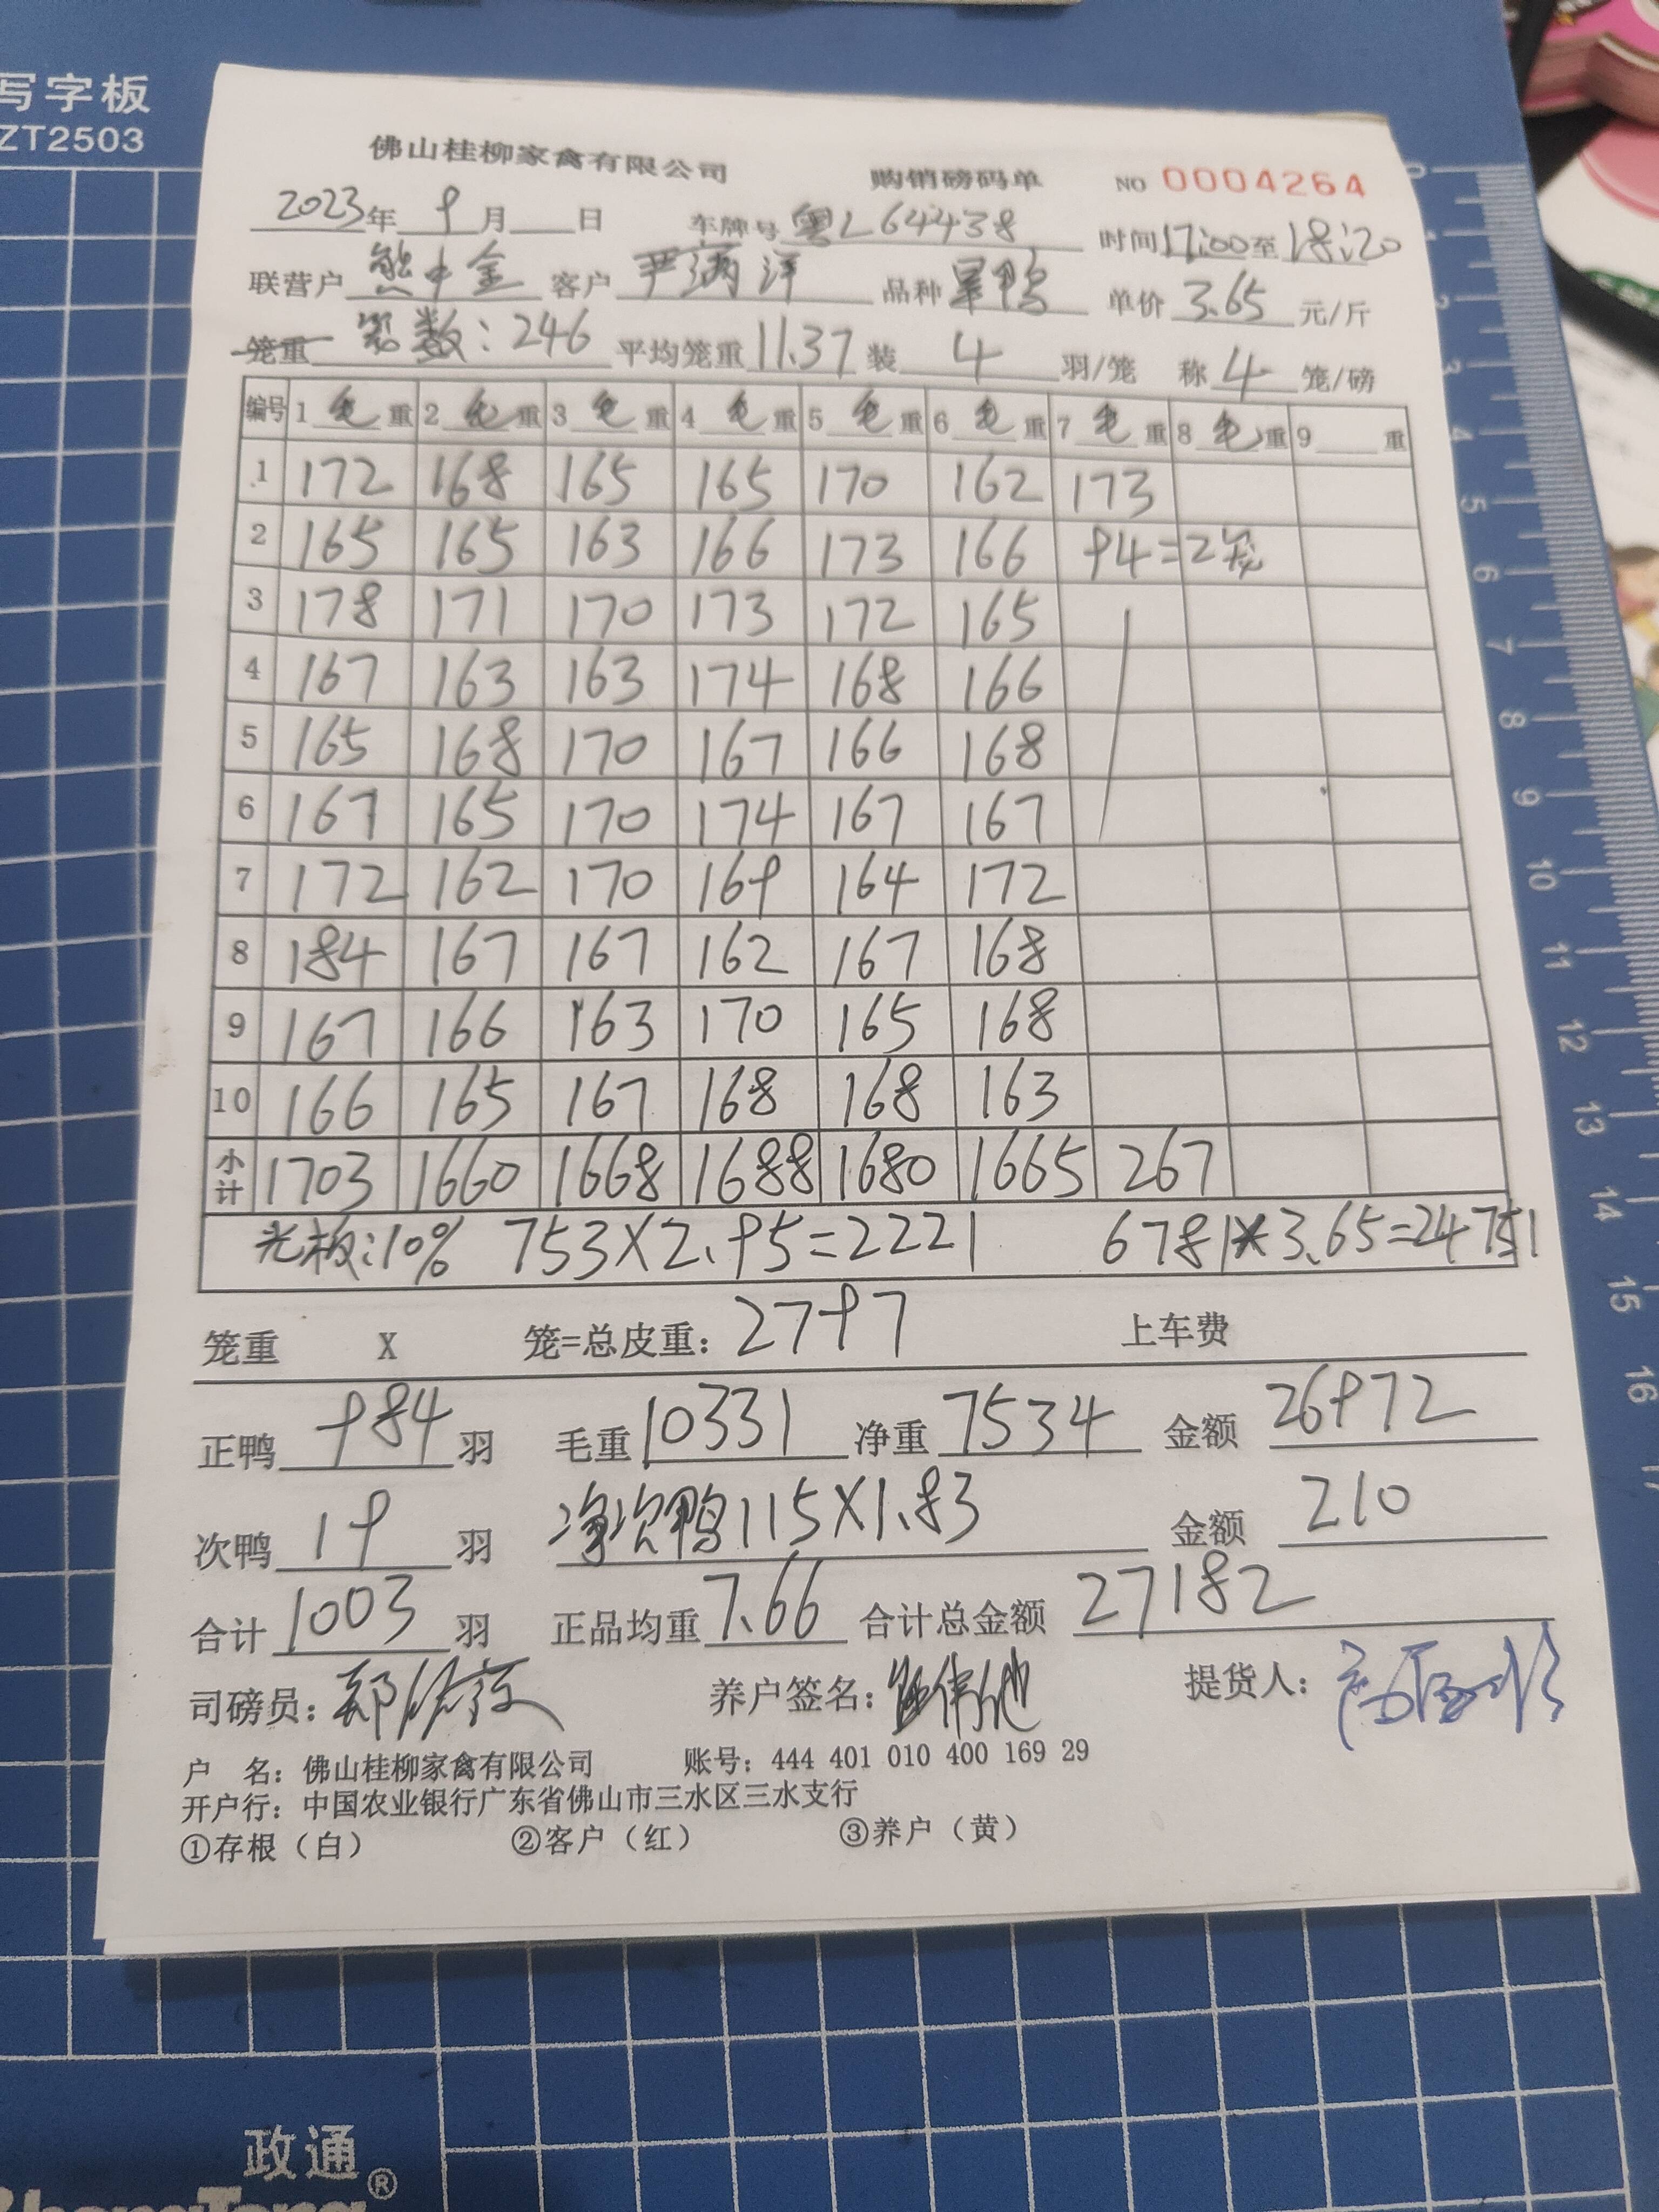 写字板
ZT2503
佛山桂柳家禽有限公司 购销磅码单 NO 0004264
2023年 9月 日 车牌号 粤L64438 时间17:00至18:20
联营户 熊中金 客户 尹满洋 品种 单价 3.65 元/斤
笼重 笼数:246 平均笼重11.37 装 4 羽/笼 称 4 笼/磅
编号 1 毛 重 2 毛 重 3 毛 重 4 毛 重 5 毛 重 6 毛 重 7 毛 重 8 毛 重 9 重
1 172 168 165 165 170 162 173
2 165 165 163 166 173 166 94=2笼
3 178 171 170 173 172 165
4 167 163 163 174 168 166
5 165 168 170 167 166 168
6 167 165 170 174 167 167
7 172 162 170 169 164 172
8 184 167 167 162 167 168
9 167 166 163 170 165 168
10 166 165 167 168 168 163
小计 1703 1660 1668 1688 1680 1665 267
光板:10% 753X2.95=2221 6781*3.65=24751
笼重 X 笼=总皮重: 2797 上车费
正鸭 984 羽 毛重 10331 净重 7534 金额 26972
次鸭 19 羽 净次鸭115X1.83 金额 210
合计 1003 羽 正品均重 7.66 合计总金额 27182
司磅员: 养户签名: 提货人:
户 名: 佛山桂柳家禽有限公司 账号: 444 401 010 400 169 29
开户行: 中国农业银行广东省佛山市三水区三水支行
①存根(白) ②客户(红) ③养户(黄)
0
1
2
3
4
5
6
7
8
9
10
11
12
13
14
15
16
17
政通®